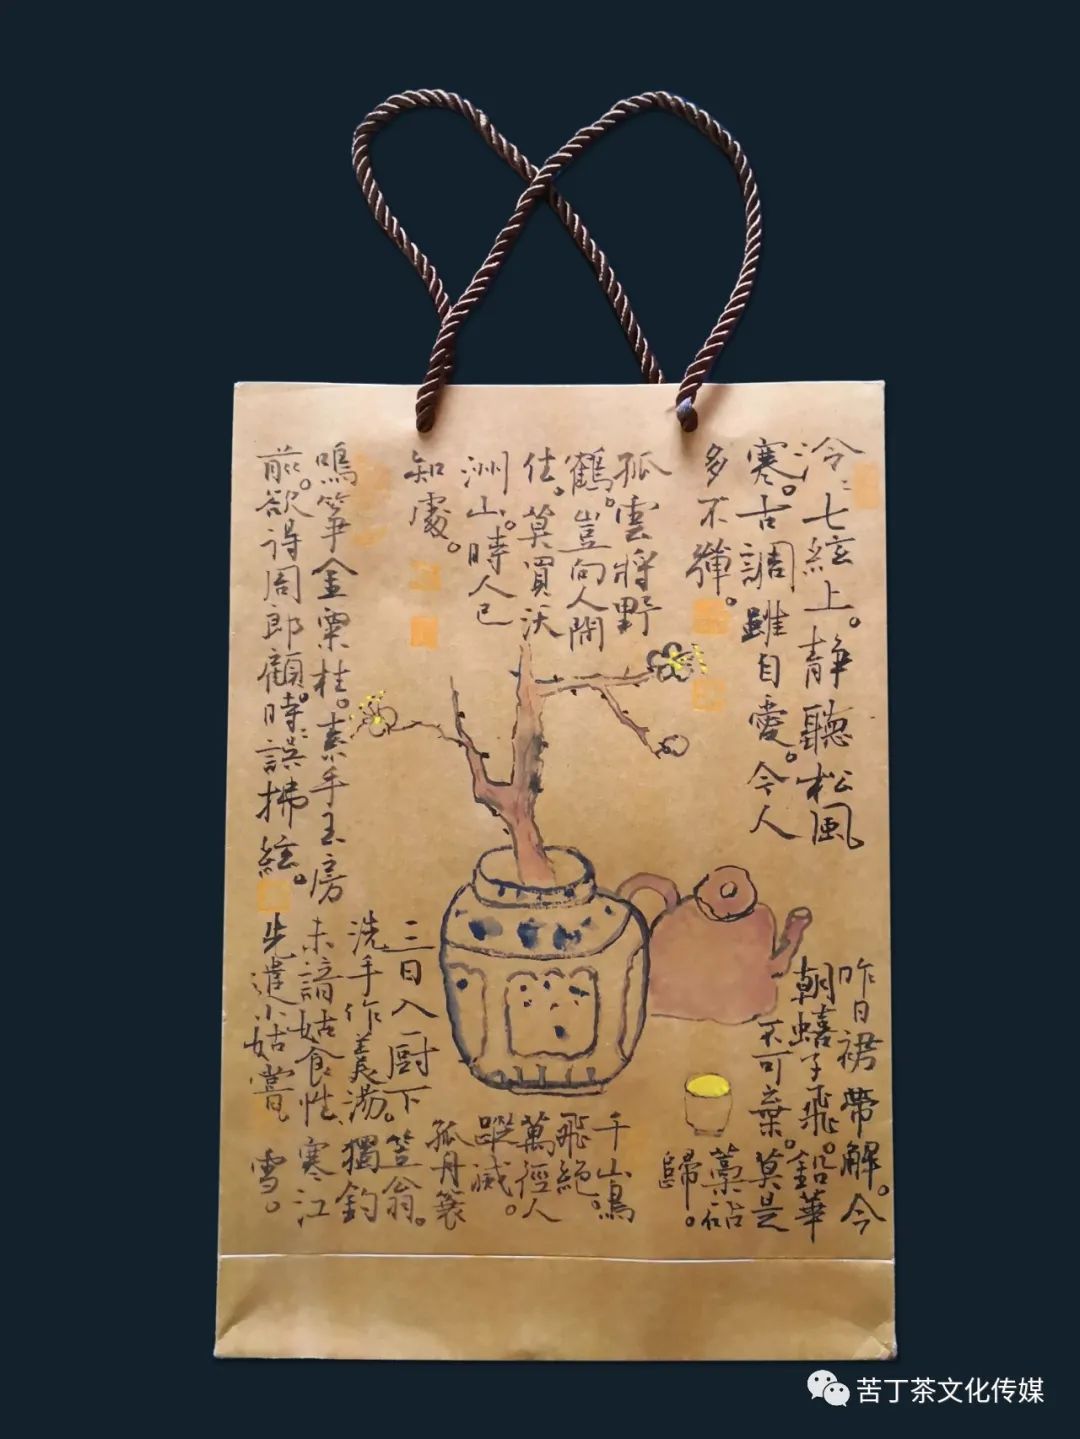 泠:七絃上。静聽松風
寒。古調雖自愛。今人
多不彈。
孤雲將野
鶴。豈向人間
住。莫買沃
洲山。時人已
知處。
鳴箏金粟柱。素手玉房
前。欲得周郎顧。時:誤拂絃。
昨日裙帶解。今
朝蟢子飛。鉛華
不可棄。莫是
藁砧
歸。
千山鳥
飛絕。
萬徑人
蹤滅。
孤舟蓑
笠翁。
獨釣
寒江
雪。
三日入厨下。
洗手作羹湯。
未諳姑食性、
先遣小姑嘗。
苦丁茶文化传媒